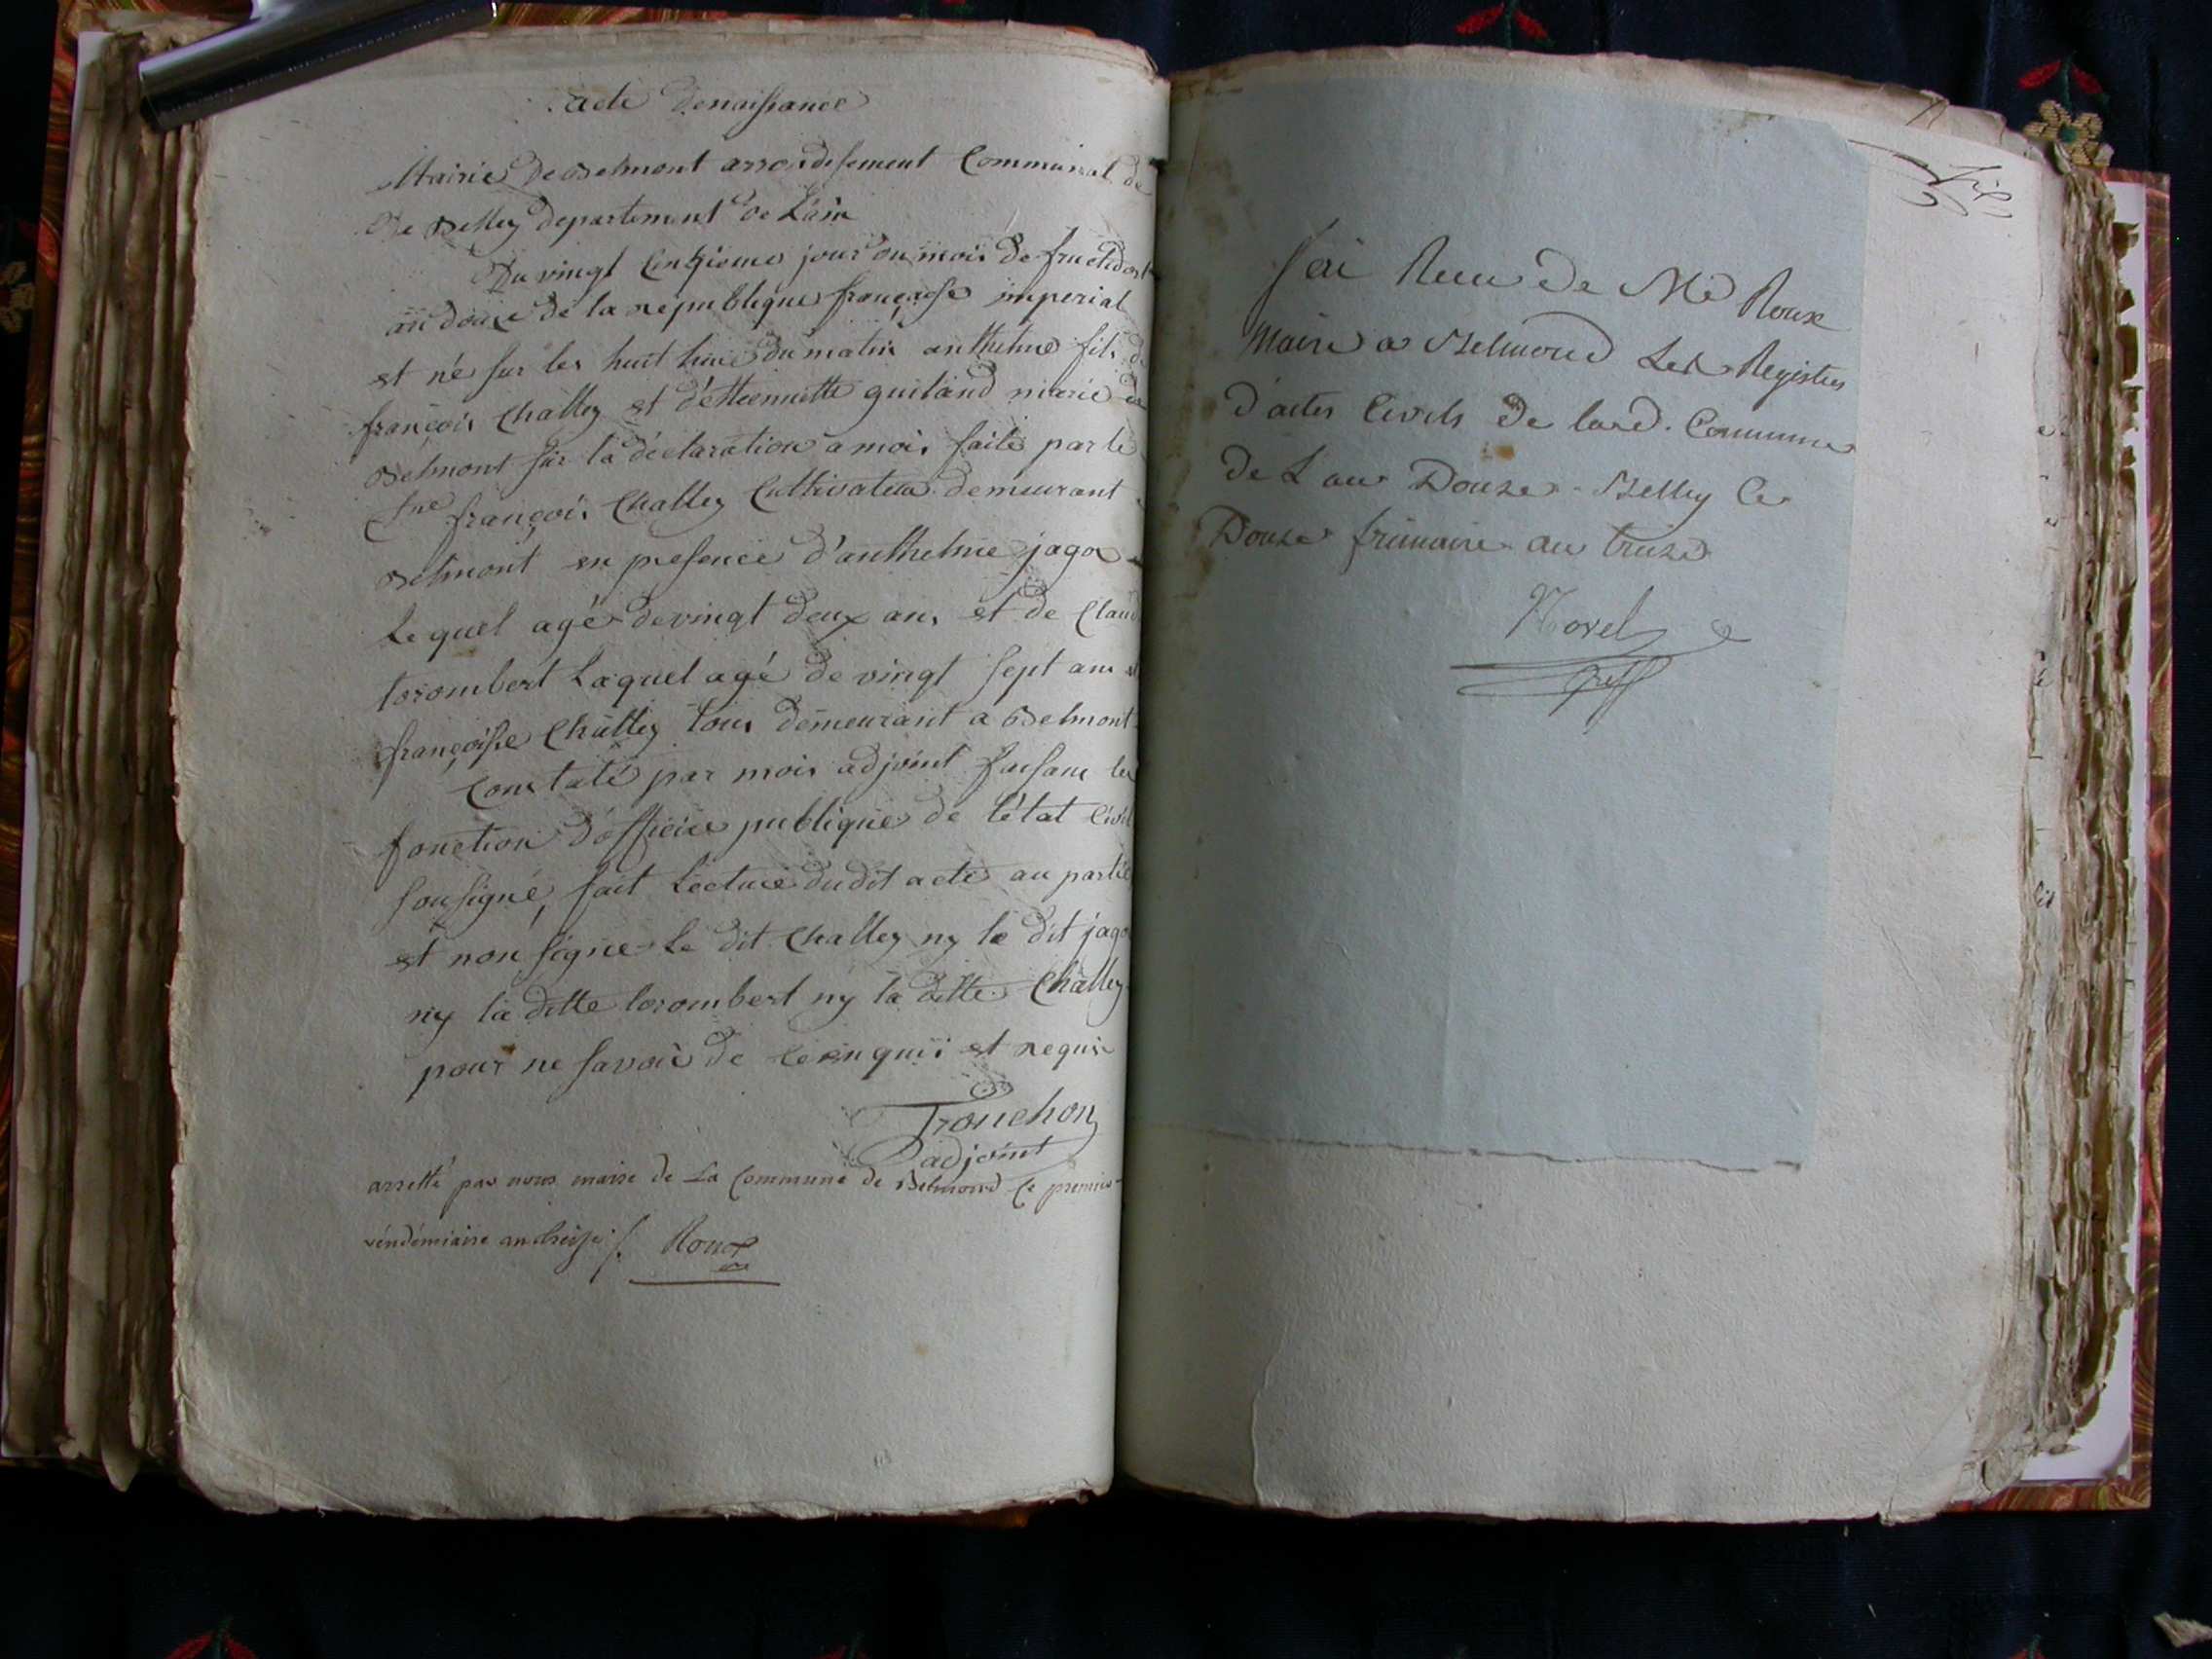 acte denaissance
Mairie de Belmont arrondissement Communal de
De Belley departement de L'ain
Du vingt Cinqieme jour du mois de fructidor
an douze de la republique française imperial
est né sur les huit heure du matin anthelme fils de
françois Challey et d'ettiennette guiland marié de
Belmont sur la déclaration a mois faite par le
françois Challey Cultivateur demeurant
Belmont en presence d'anthelme jago
Lequel agé de vingt deux ans et de Claud
torombert Laquel agé de vingt sept ans
françoisse Challey tous demeurant a Belmont
Constaté par mois adjoint faisans les
fonction d'officier publique de l'état Civil
sousigné, fait Lecture dudit acte au partie
et non signé Le dit Challey ny le dit jago
ny la ditte torombert ny la ditte Challey
pour ne savoir de ce enquii et requi
Trouchon
adjoint
arretté par nous maire de La Commune de Belmond le premier
vendémiaire an treize /. Roux
J'ai Recu de Mr Roux
Maire a Belmond Les Registres
D'actes Civils De lad. Commune
De L an Douze - Belley le
Douze frimaire an treize
Morel